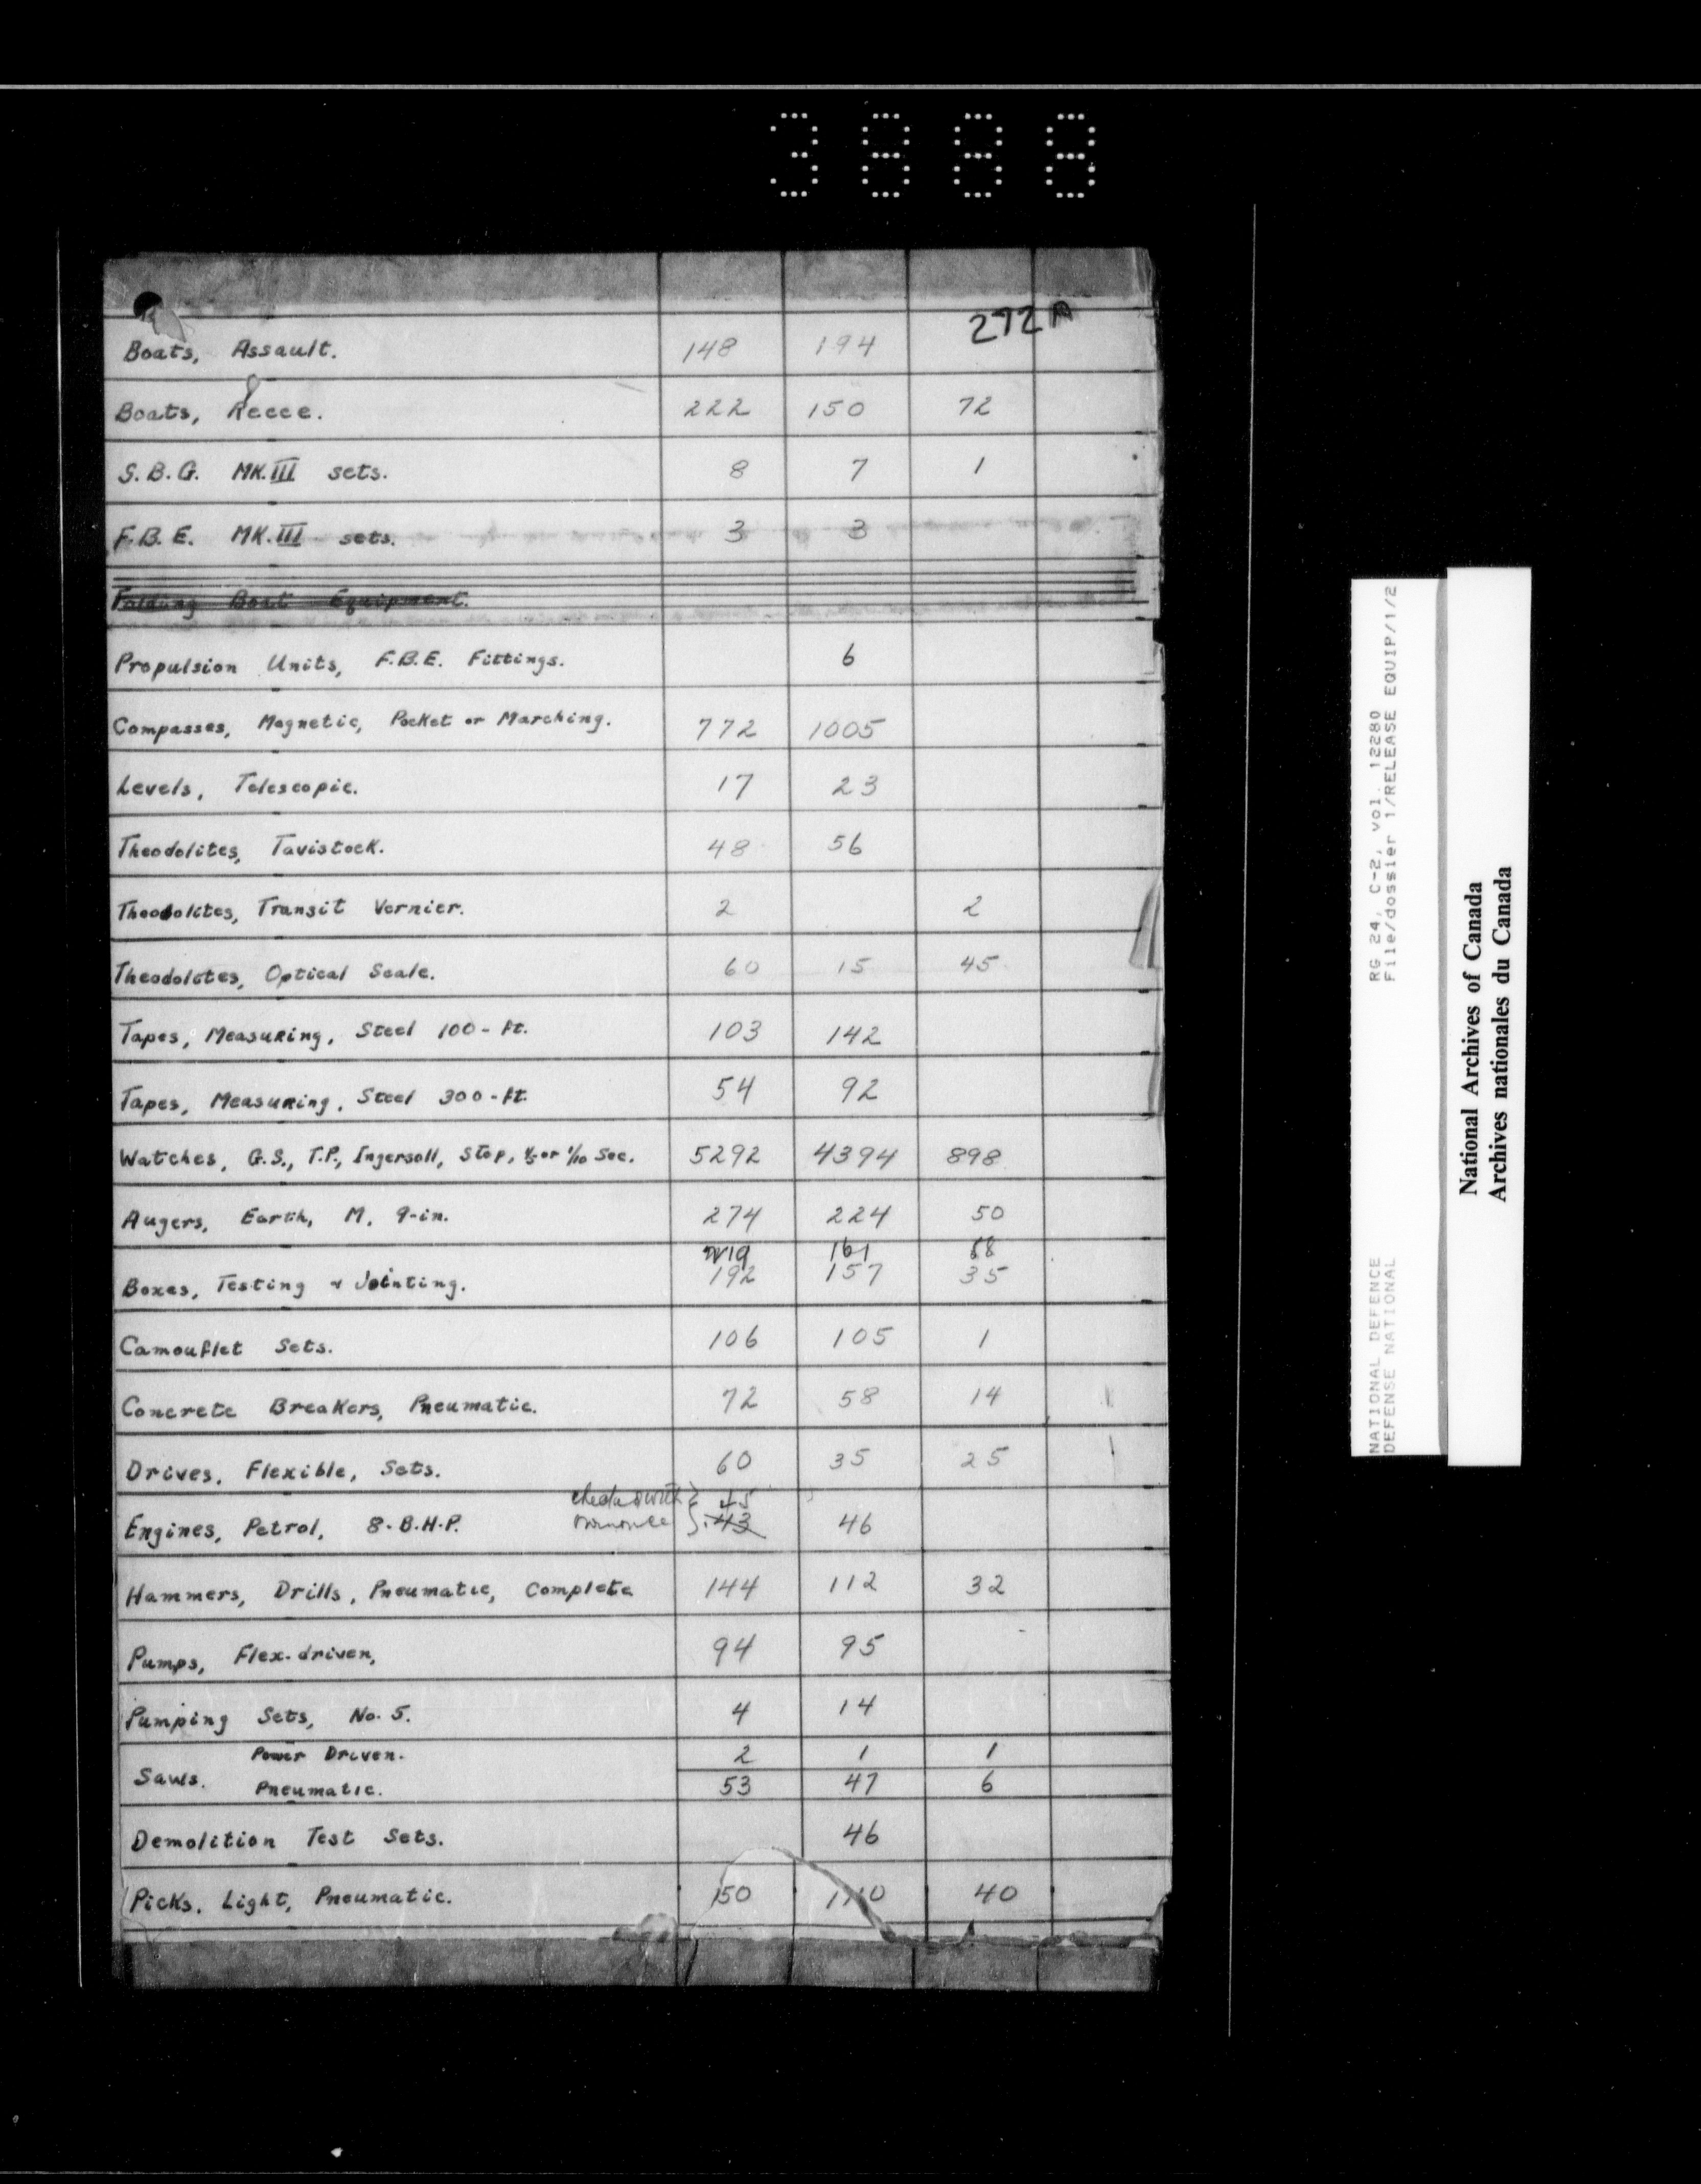 3888
272A
Boats, Assault. 148 194
Boats, Recce. 222 150 72
S.B.G. MK.III sets. 8 7 1
F.B.E. MK.III sets. 3 3
Folding Boat Equipment.
Propulsion Units, F.B.E. Fittings. 6
Compasses, Magnetic, Pocket or Marching. 772 1005
Levels, Telescopic. 17 23
Theodolites, Tavistock. 48 56
Theodolites, Transit Vernier. 2 2
Theodolites, Optical Scale. 60 15 45
Tapes, Measuring, Steel 100-ft. 103 142
Tapes, Measuring, Steel 300-ft. 54 92
Watches, G.S., T.P., Ingersoll, Stop, 1/5 or 1/10 Sec. 5292 4394 898
Augers, Earth, M. 9-in. 274 224 50
161
Boxes, Testing & Jointing. 192 157 35
Camouflet Sets. 106 105 1
Concrete Breakers, Pneumatic. 72 58 14
Drives, Flexible, Sets. 60 35 25
45
Engines, Petrol, 8-B.H.P. 43 46
Hammers, Drills, Pneumatic, Complete 144 112 32
Pumps, Flex-driven, 94 95
Pumping Sets, No. 5. 4 14
Power Driven. 2 1 1
Saws.
Pneumatic. 53 47 6
Demolition Test Sets. 46
Picks, Light, Pneumatic. 150 40
RG 24, C-2, vol. 12280
File/dossier 1/RELEASE EQUIP/1/2
NATIONAL DEFENCE
DEFENSE NATIONAL
National Archives of Canada
Archives nationales du Canada